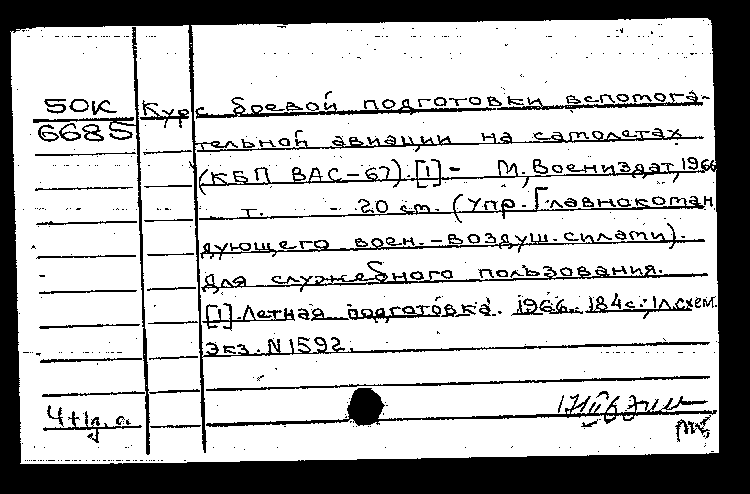 50К
6685
Курс боевой подготовки вспомога-
тельной авиации на самолетах
(КБП ВАС-67).[1]- М,Воениздат,1966
т. - 20 см. (Упр.Главнокоман
дующего воен.-воздуш.силами).
Для служебного пользования.
[1].Летная подготовка. 1966. 184с.;1л.схем.
Экз.N1592.